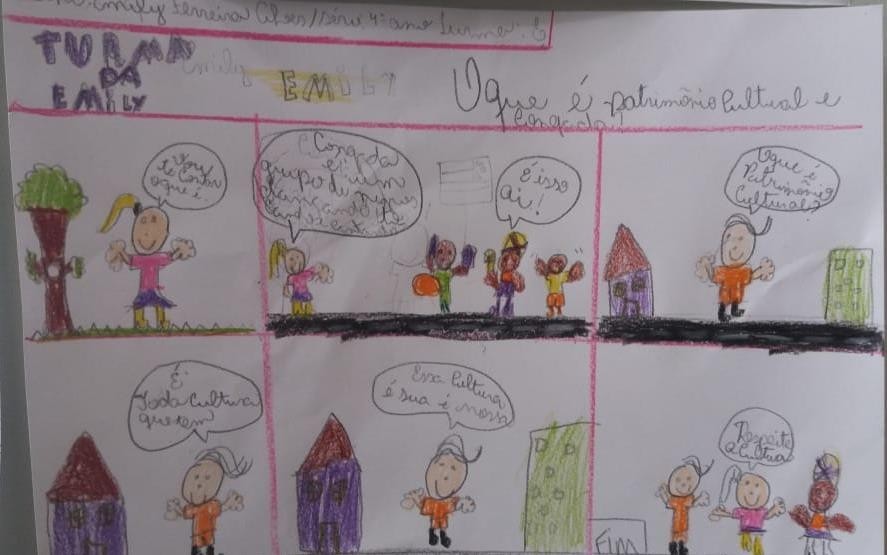 Emily Ferreira /série: 4º ano Turma: E
TURMA
DA
EMILY
Emily
EMILY
O que é patrimônio cultural e
Congada?
Vou
te contar
o que é
Congada
é um
grupo de
dançando
É isso
ai!
O que é
Patrimônio
Cultural?
É
Toda cultura
que tem
Essa Cultura
é sua é nossa
Respeite
a Cultura
FIM